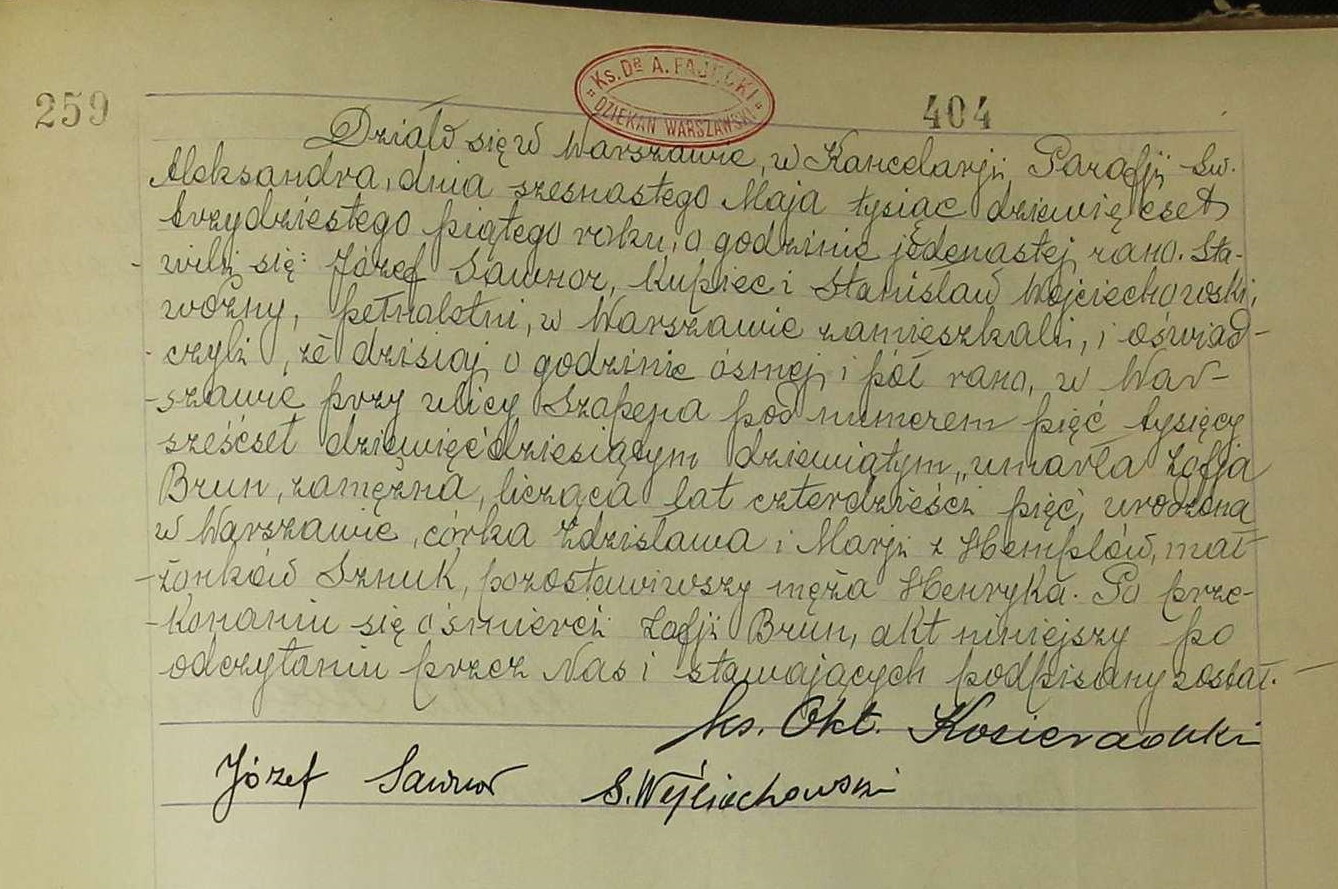 259
Ks. Dr A. FAJĘCKI
DZIEKAN WARSZAWSKI
404
Działo się w Warszawie, w Kancelarji Parafji Św.
Aleksandra, dnia szesnastego Maja tysiąc dziewięćset
trzydziestego piątego roku, o godzinie jedenastej rano. Sta-
wili się: Józef Sawnor, kupiec i Stanisław Wojciechowski,
woźny, pełnoletni, w Warszawie zamieszkali, i oświad-
czyli, że dzisiaj o godzinie ósmej i pół rano, w War-
szawie przy ulicy Szopena pod numerem pięć tysięcy
sześćset dziewięćdziesiątym dziewiątym, umarła Zofja
Brun, zamężna, licząca lat czterdzieści pięć, urodzona
w Warszawie, córka Zdzisława i Marji z Hemplów, mał-
żonków Sznuk, pozostawiwszy męża Henryka. Po prze-
konaniu się o śmierci Zofji Brun, akt niniejszy po
odczytaniu przez Nas i stawających podpisany został.
ks. Okt. Kosieradzki
Józef Sawnor S. Wojciechowski